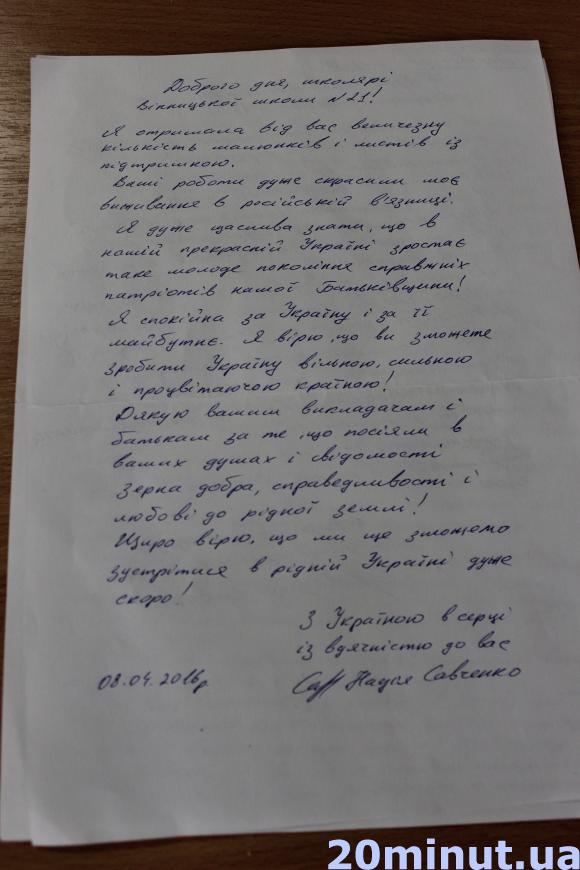 Доброго дня, школярі
Вінницької школи №21!
Я отримала від вас величезну
кількість малюнків і листів із
підтримкою.
Ваші роботи дуже скрасили моє
виживання в російській в'язниці.
Я дуже щаслива знати, що в
нашій прекрасній Україні зростає
таке молоде покоління справжніх
патріотів нашої Батьківщини!
Я спокійна за Україну і за її
майбутнє. Я вірю, що ви зможете
зробити Україну вільною, сильною
і процвітаючою країною!
Дякую вашим викладачам і
батькам за те, що посіяли в
ваших душах і свідомості
зерна добра, справедливості і
любові до рідної землі!
Щиро вірю, що ми ще зможемо
зустрітися в рідній Україні дуже
скоро!
З Україною в серці
із вдячністю до вас
08.04.2016р. Надія Савченко
20minut.ua